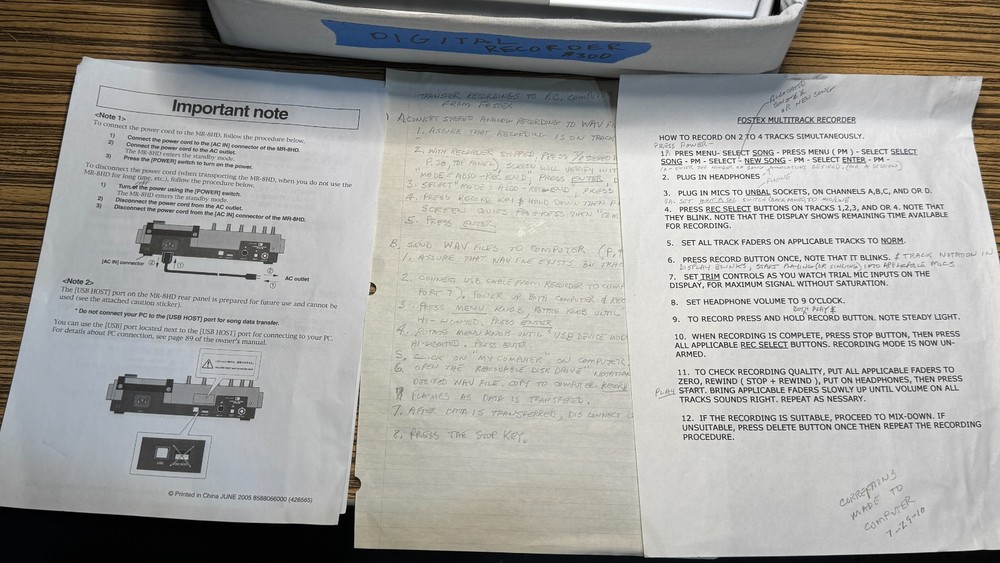 DIGITAL
RECORDER
Important note
<Note 1>
To connect the power cord to the MR-8HD, follow the procedure below.
1) Connect the power cord to the [AC IN] connector of the MR-8HD.
2) Connect the power cord to the AC outlet.
The MR-8HD enters the standby mode.
3) Press the [POWER] switch to turn on the power.
To disconnect the power cord (when transporting the MR-8HD, when you do not use the
MR-8HD for long time, etc.), follow the procedure below.
1) Turn off the power using the [POWER] switch.
The MR-8HD enters the standby mode.
2) Disconnect the power cord from the AC outlet.
3) Disconnect the power cord from the [AC IN] connector of the MR-8HD.
[AC IN] connector
② ①
AC outlet
①
<Note 2>
The [USB HOST] port on the MR-8HD rear panel is prepared for future use and cannot be
used (see the attached caution sticker).
* Do not connect your PC to the [USB HOST] port for song data transfer.
You can use the [USB] port located next to the [USB HOST] port for connecting to your PC.
For details about PC connection, see page 89 of the owner's manual.
© Printed in China JUNE 2005 8588066000 (426565)
TRANSFER RECORDINGS TO P.C. COMPU
FROM FOSTEX
CONVERT STEREO ANALOG RECORDING TO WAV
1. ASSURE THAT RECORDING IS ON TRACK
2. WITH RECORDER STOPPED, PRESS
SCREEN WILL
MODE - A03 - REC END, PRESS ENTER
3. SELECT A03 - REC END, PRESS
4. PRESS RECORD KEY & HOLD DOWN THEN
SCREEN THEN
5. PRESS ENTER
B. SEND WAV FILES TO COMPUTER
1. ASSURE THAT WAV FILE EXISTS ON
2. CONNECT USB CABLE FROM RECORDER TO COMP
PORT 7), POWER UP BOTH COMPUTER & REC
3. PRESS MENU KNOB, ROTATE KNOB UNTIL
HI-LIGHTED, PRESS ENTER
4. ROTATE MENU KNOB UNTIL USB DEVICE MOD
HI-LIGHTED. PRESS ENTER
5. CLICK ON "MY COMPUTER" ON COMPUTER
6. OPEN THE REMOVABLE DISK DRIVE" NOTATION
DESIRED WAV FILE, COPY TO COMPUTER.
FLASHES AS DATA IS TRANSFERED.
7. AFTER DATA IS TRANSFERRED, DISCONNECT
8. PRESS THE STOP KEY.
OR NEW SONG
FOSTEX MULTITRACK RECORDER
HOW TO RECORD ON 2 TO 4 TRACKS SIMULTANEOUSLY.
PRESS POWER -
1. PRES MENU- SELECT SONG - PRESS MENU ( PM ) - SELECT SELECT
SONG - PM - SELECT - NEW SONG - PM - SELECT ENTER - PM -
2. PLUG IN HEADPHONES
3. PLUG IN MICS TO UNBAL SOCKETS, ON CHANNELS A,B,C, AND OR D.
4. PRESS REC SELECT BUTTONS ON TRACKS 1,2,3, AND OR 4. NOTE THAT
THEY BLINK. NOTE THAT THE DISPLAY SHOWS REMAINING TIME AVAILABLE
FOR RECORDING.
5. SET ALL TRACK FADERS ON APPLICABLE TRACKS TO NORM.
6. PRESS RECORD BUTTON ONCE, NOTE THAT IT BLINKS. & TRACK NOTATION IN
DISPLAY BLINKS, START PLAYING (OR SINGING) INTO APPLICABLE MICS
7. SET TRIM CONTROLS AS YOU WATCH TRIAL MIC INPUTS ON THE
DISPLAY, FOR MAXIMUM SIGNAL WITHOUT SATURATION.
8. SET HEADPHONE VOLUME TO 9 O'CLOCK.
BOTH PLAY &
9. TO RECORD PRESS AND HOLD RECORD BUTTON. NOTE STEADY LIGHT.
10. WHEN RECORDING IS COMPLETE, PRESS STOP BUTTON, THEN PRESS
ALL APPLICABLE REC SELECT BUTTONS. RECORDING MODE IS NOW UN-
ARMED.
11. TO CHECK RECORDING QUALITY, PUT ALL APPLICABLE FADERS TO
ZERO, REWIND ( STOP + REWIND ), PUT ON HEADPHONES, THEN PRESS
PLAY START. BRING APPLICABLE FADERS SLOWLY UP UNTIL VOLUME ON ALL
TRACKS SOUNDS RIGHT. REPEAT AS NESSARY.
12. IF THE RECORDING IS SUITABLE, PROCEED TO MIX-DOWN. IF
UNSUITABLE, PRESS DELETE BUTTON ONCE THEN REPEAT THE RECORDING
PROCEDURE.
CORRECTIONS
MADE TO
COMPUTER
7-29-10